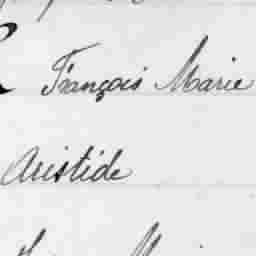 François Marie
Aristide